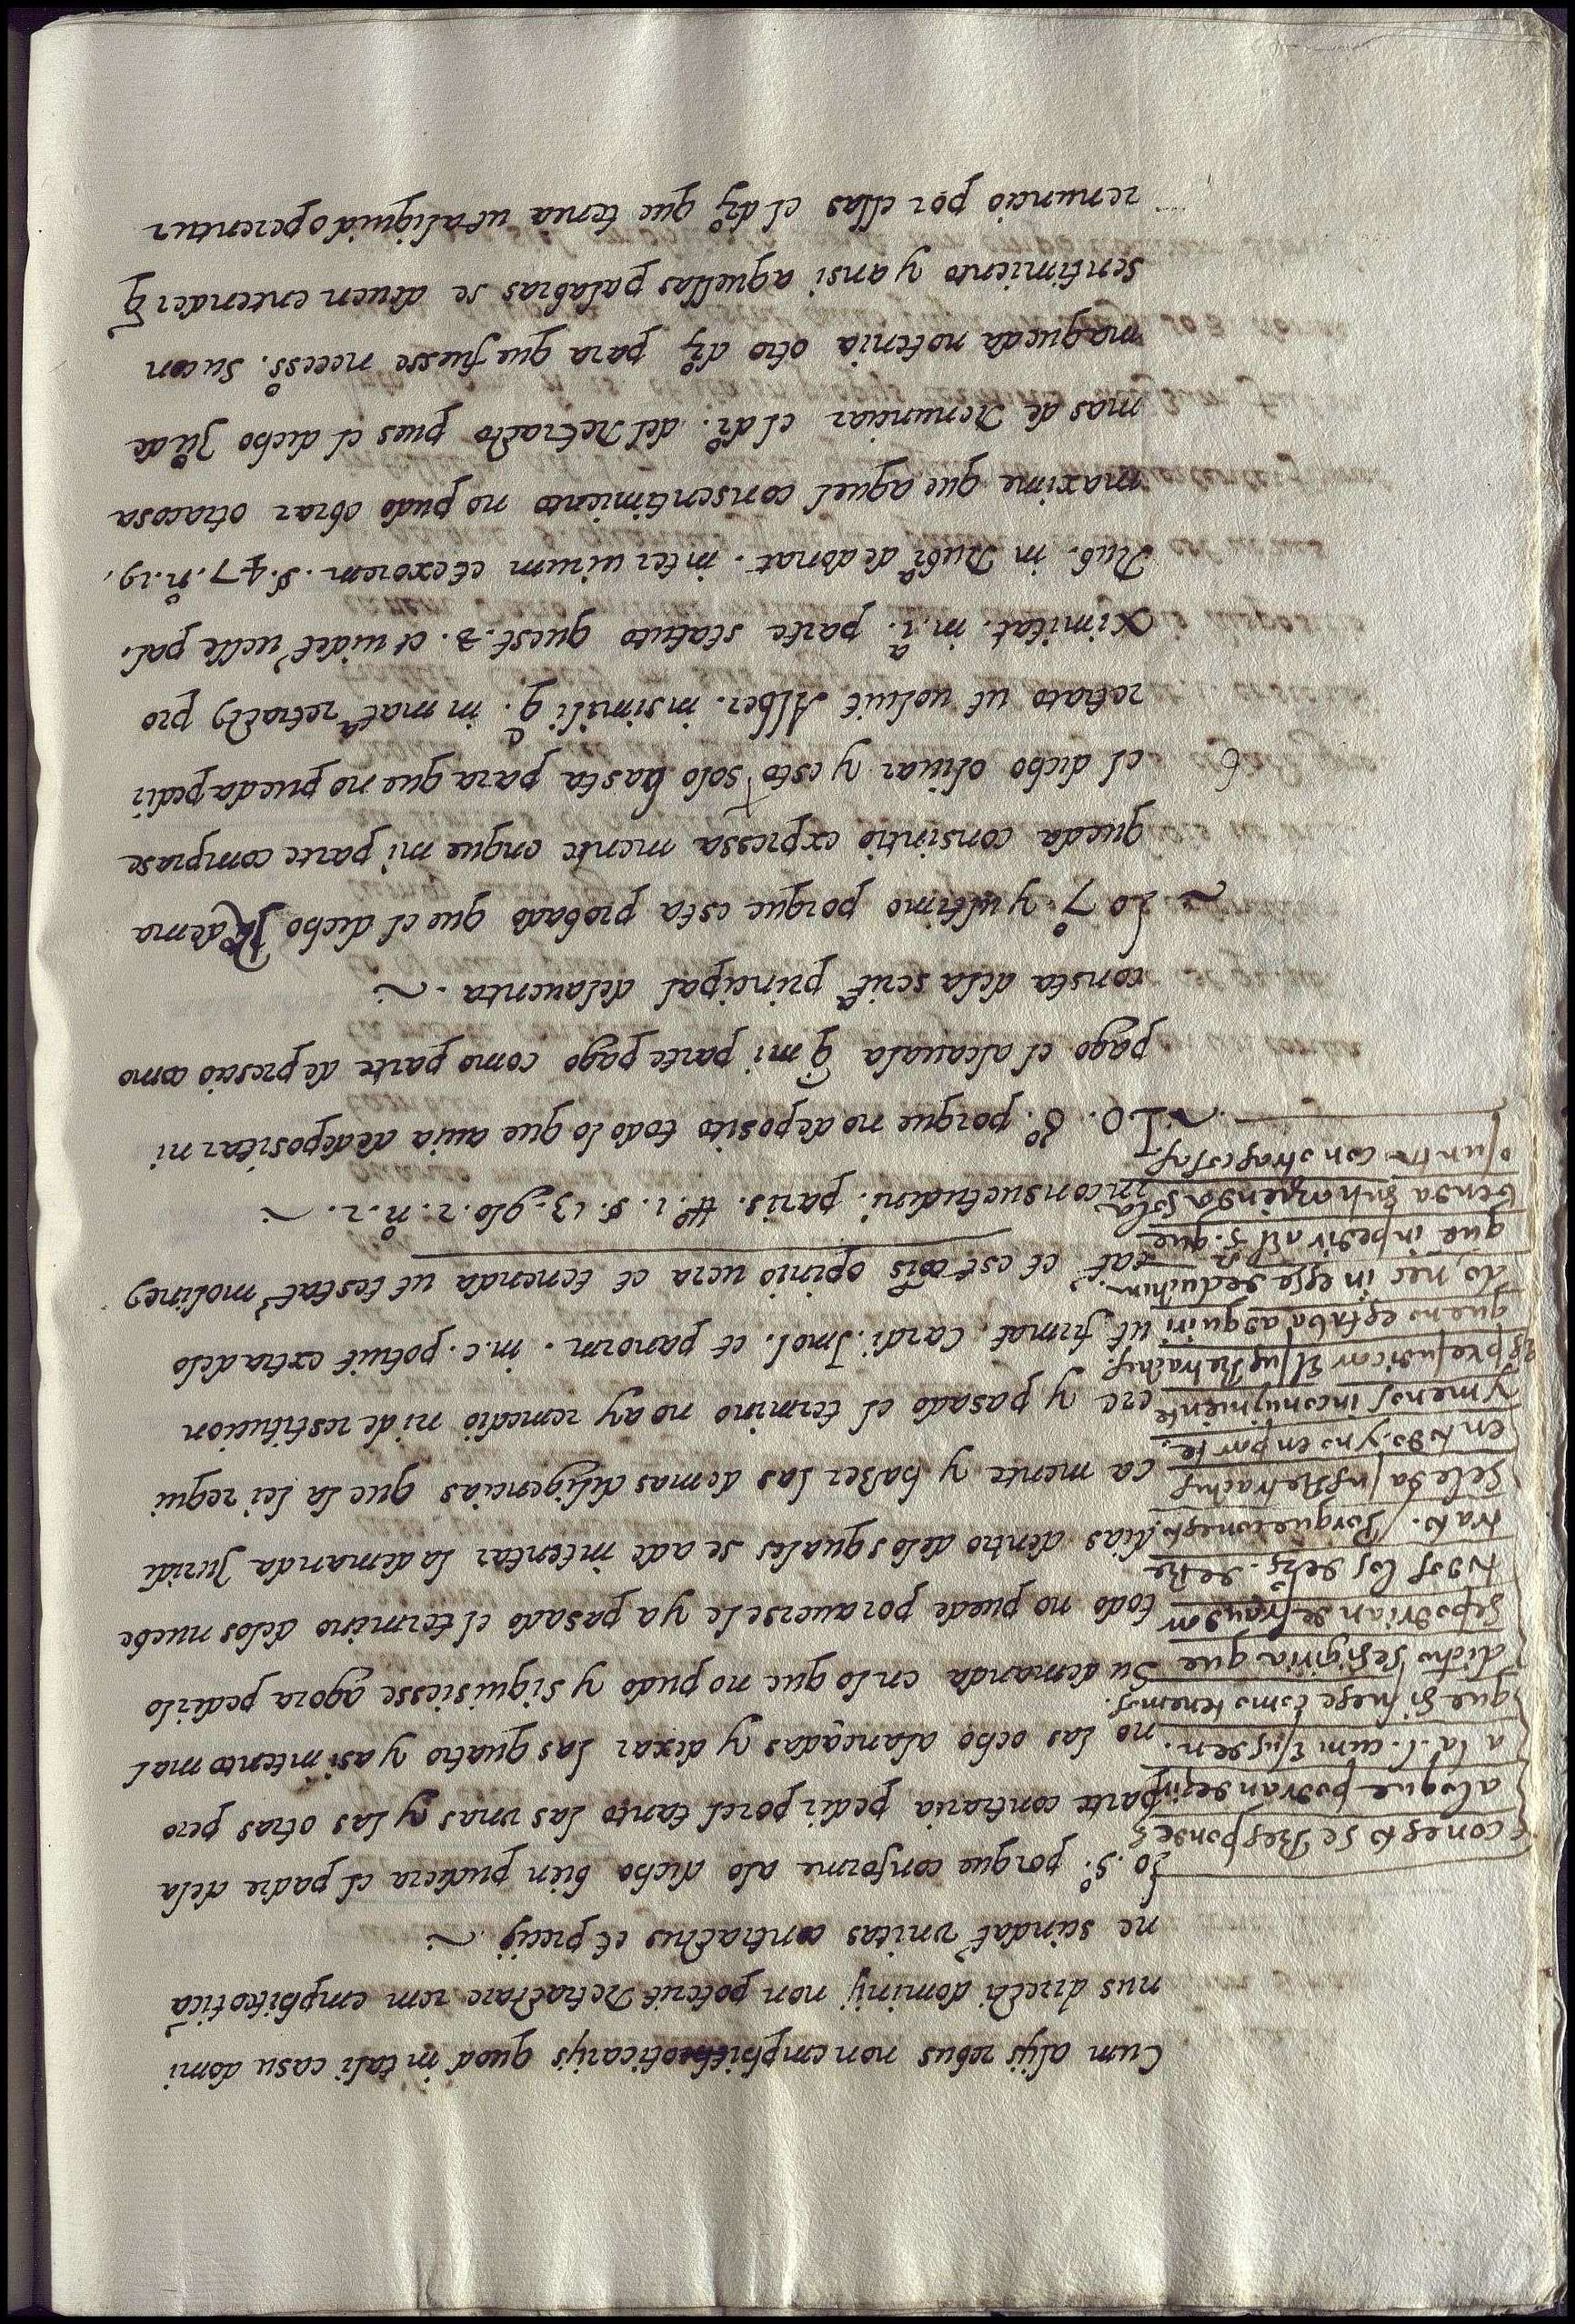 Cum alijs rebus non emphiteoticarijs quod in tali casu domi
nus directi dominij non poterit Retractare rem emphiteoticã
ne scindat² vnitas contractus et precij ~
Lo .5º. porque conforme alo dicho bien pudiera el padre dela
parte contraria pedir porel tanto las vnas y las otras pero
no las ocho alançadas y dexar las quatro y asi intento mal
Su demanda en lo que no pudo y siquisiesse agora pedirlo
todo no puede poraversele ya pasado el termino delos nuebe
dias dentro delos quales se ade intentar la demanda Juridi
ca mente y haßer las demas diligencias que la lei requi
ere y pasado el termino no ay remedio ni de restitucion
ut firmat. Cardi. Imol. et panorm. in. c. potuit extra de lo
cat. et est cõis opinio uera et tenenda ut testat² molineus
in consuetudini. paris. ttº. 1. §. 13. glo. 2. nº. 2. ~
~ Lo. 6º. porque no deposito todo lo que auia de depositar ni
pago el alcauala q̃ mi parte pago como parte de precio como
consta dela scritª principal dela uenta. ~
~ Lo 7º y ultimo porque esta probado que el dicho Juº de ma
queda consintio expressa mente en que mi parte comprase
el dicho oliuar y esto solo basta para que no pueda pedir
retrato ut uoluit Alber. in simili q. in matª retractus pro
ximitat. in .1ª. parte statuto quest. 3. et videt² uelle pal.
Rub. in Rubª de donat. inter uirum et exorem. §. 47. nº. 19.
maxime que aquel consentimiento no pudo obrar otra cosa
mas de Renunciar el drº. del Retracto pues el dicho Juº de
maqueda no tenia otro drº para que fuesse necessº. su con
sentimiento y ansi aquellas palabras se deuen entender q̃
renuncio por ellas el drº que tenia ut aliquid operentur
con esto se Responde
a lo que podran dezir
a la .l. cum eiusdem.
que si fuese como tenemos
dicho se siguiria que
se podrian defraudar
todos los derºs. de Re
trato. Porque con esto
se le da jus Retractus
en todo, y no en parte.
y menos inconuiniente
es prejudicar el jus Retractus
que no estaba adquiri
do, nec in esse deductum
que inpedir al que
benda su hazienda sola
o junta con otra cosa